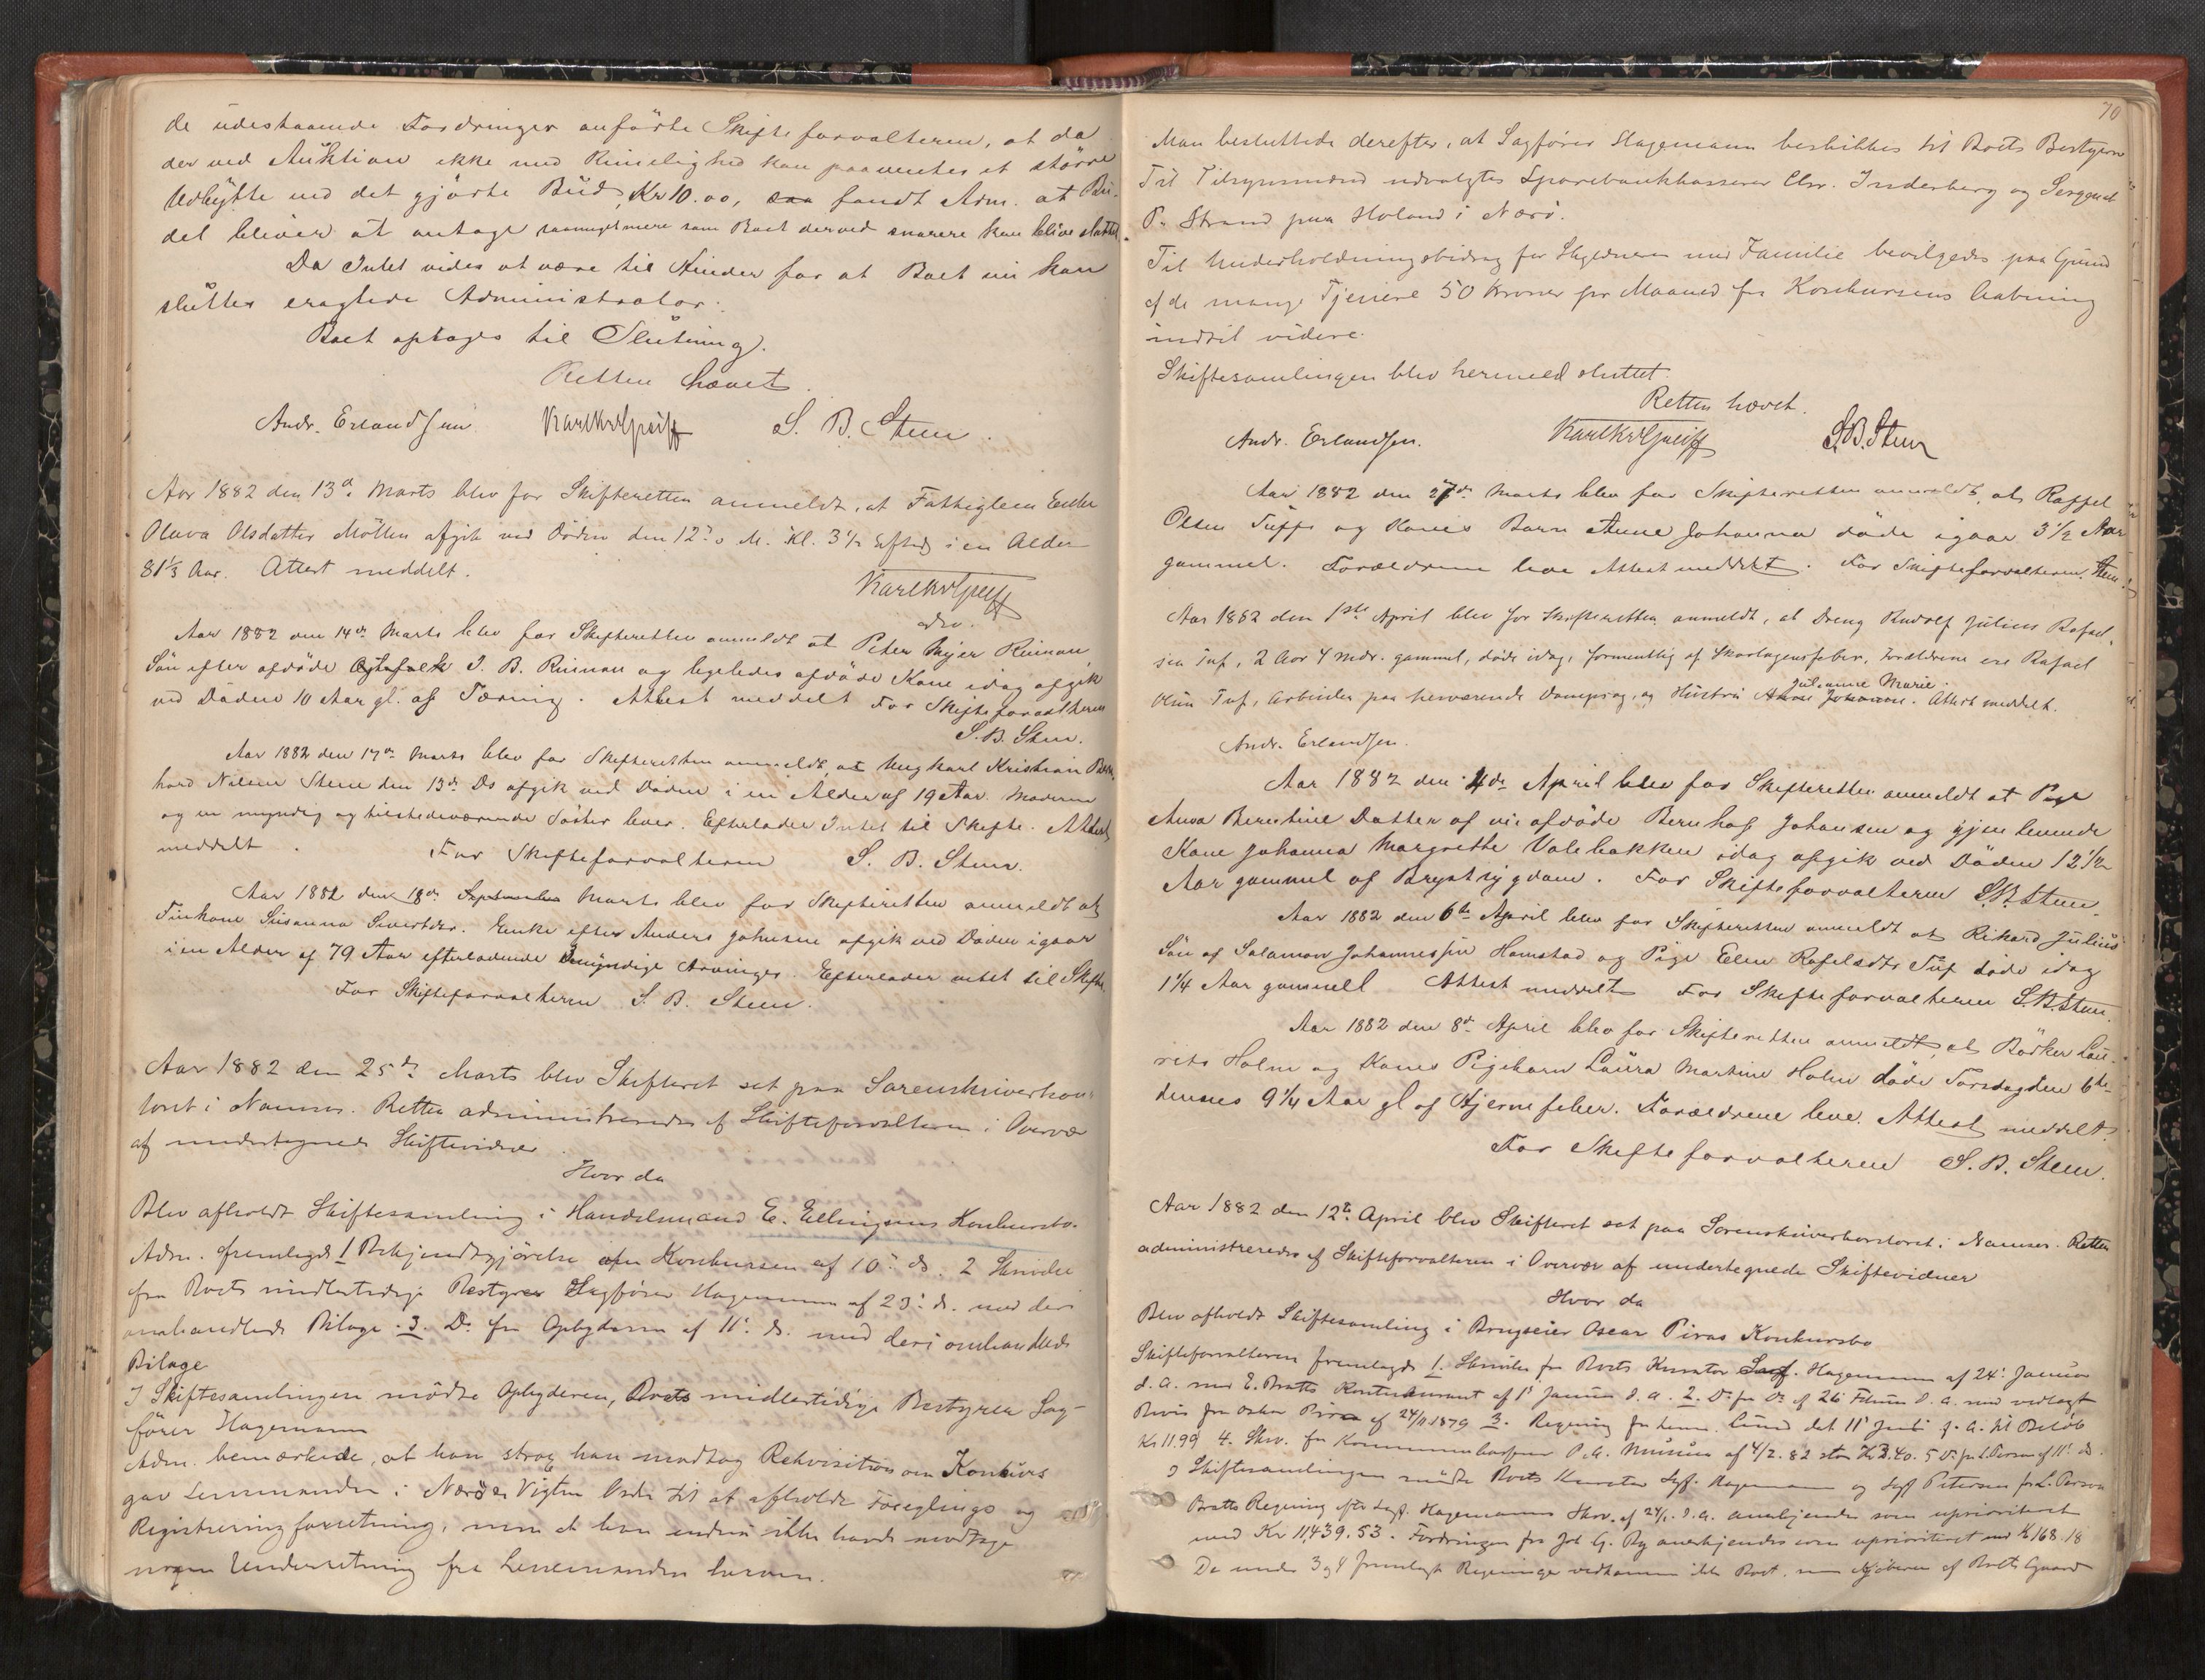 de udestaaende Fordringer anførte Skifteforvalteren, at da
der ved Auktion ikke med Rimelighed kan paaventes et større
Udbytte end det gjorte Bud, Kr 10.00, fandt Adm. at Bu-
det bliver at antage saameget mere som Boet derved snarere kan blive sluttet
Da Intet vides at være til Hinder for at Boet nu kan
sluttes eragtede Administrator:
Boet optages til Slutning.
Retten hævet.
Andr. Erlandsen S. B. Steen.
Aar 1882 den 13de Marts blev for Skifteretten anmeldt, at Fattiglem Enke
Olava Olsdatter Möllen afgik ved Døden den 12te d. M. Kl. 3½ Eftmd i en Alder
81⅓ Aar. Attest meddelt.
Aar 1882 den 14de Marts blev for Skifteretten anmeldt at Peter Mejer Rinnan
Sön efter afdöde J. B. Rinnan og ligeledes afdöde Kone idag afgik
ved Döden 10 Aar gl. af Tæring. Attest meddelt For Skifteforvalteren
S. B. Steen.
Aar 1882 den 17de Marts blev for Skifteretten anmeldt, at Ungkarl Kristian Bern-
hard Nilsen Steene den 13de Ds afgik ved Döden i en Alder af 19 Aar. Moderen
og en myndig og tilstedeværende Söster lever. Efterlader Intet til Skifte. Attest
meddelt. For Skifteforvalteren S. B. Steen.
Aar 1882 den 18de Marts blev for Skifteretten anmeldt at
Susanna Sivertdtr. Enke efter Anders Johnsen afgik ved Döden igaar
i en Alder af 79 Aar efterladende myndige Arvinger. Efterlader intet til Skifte.
For Skifteforvalteren S. B. Steen.
Aar 1882 den 25de Marts blev Skifteret sat paa Sorenskriverkon-
toret i Namsos. Retten administreredes af Skifteforvalteren i Overvær
af undertegnede Skiftevidner
Hvor da
Blev afholdt Skiftesamling i Handelsmand E. Ellingsens Konkursbo.
Adm. fremlagde 1 Bekjendtgjörelse om Konkursen af 10de ds. 2 Skrivelse
fra Boets midlertidige Bestyrer Sagfører Hagemann af 23de ds. med deri
omhandlede Bilage. 3. Do. fra Opbyderen af 11te ds. med deri omhandlede
Bilage
I Skiftesamlingen mødte Opbyderen, Boets midlertidige Bestyrer Sag-
fører Hagemann
Adm. bemærkede, at han strax han modtog Rekvisition om Konkurs
gav Lensmanden i Nærö & Vigten Ordre til at afholde Forseglings og
Registreringsforretning, men at han endnu ikke havde modtaget
nogen Underretning fra Lensmanden herom.
70
Man besluttede derefter, at Sagfører Hagemann beskikkes til Boets Bestyrer
Til Tilsynsmænd udvalgtes Sparebankkasserer Chr. Inderberg og Sergeant
P. Strand paa Holand i Nærö.
Til Underholdningsbidrag for Skyldneren med Familie bevilgedes paa Grund
af de mange Tjenere 50 Kroner pr Maaned fra Konkursens Aabning
indtil videre.
Skiftesamlingen blev hermed sluttet.
Retten hævet.
Andr. Erlandsen. S. B. Steen
Aar 1882 den 27de Marts blev for Skifteretten anmeldt, at Raffel
Olsen og Kones Barn Anne Johanna döde igaar 3½ Aar
gammel. Forældrene leve Attest meddelt. For Skifteforvalteren. Steen.
Aar 1882 den 1ste April blev for Skifteretten anmeldt, at Dreng Rudolf Julius Rafael-
sen Tuf, 2 Aar 4 Mdr. gammel, døde idag, formentlig af Skarlagensfeber, Forældrene ere Rafael
Olsen Tuf, Arbeider paa herværende Dampsag, og Hustru Anne Johanna. Attest meddelt.
Julianne Marie
Andr. Erlandsen.
Aar 1882 den 4de April blev for Skifteretten anmeldt at Pige
Anna Berntine Datter af nu afdöde Bernhof Johansen og gjenlevende
Kone Johanna Margrethe Valebakken idag afgik ved Döden 12½
Aar gammel af Brystsygdom. For Skifteforvalteren S. B. Steen.
Aar 1882 den 6te April blev for Skifteretten anmeldt at Rikard Julius
Sön af Salamon Johannessen Hamstad og Pige Elen Rafelsdtr Tuf döde idag
1¼ Aar gammell Attest meddelt For Skifteforvalteren S. B. Steen.
Aar 1882 den 8de April blev for Skifteretten anmeldt, at Bödker Lau-
rits Holm og Kones Pigebarn Laura Martine Holm döde Torsdag den 6te
dennes 9¼ Aar gl af Hjernefeber. Forældrene leve. Attest meddelt.
For Skifteforvalteren S. B. Steen.
Aar 1882 den 12te April blev Skifteret sat paa Sorenskriverkontoret i Namsos. Retten
administreredes af Skifteforvalteren i Overvær af undertegnede Skiftevidner
Hvor da
Blev afholdt Skiftesamling i Brugseier Oscar Piros Konkursbo
Skifteforvalteren fremlagde 1. Skrivelse fra Boets Kurator Sagf. Hagemann af 24de Januar
d. A. med E. Bratts Kontokurant af 1ste Januar d. A. 2. Do fra Do af 26 Februar d. A. med vedlagt
Bevis fra Oskar Piros af 24/11 1879 3. Regning fra Lund det 11te Juli f. A. til Beløb
Kr 11.99 4. Skr. fra Kommunekasserer P. A. af 4/2. 82 stor Kr 2.40. 5 Do. fra L. Person af 11te ds.
I Skiftesamlingen mødte Boets Kurator Sagf. Hagemann og Sagf Petersen for L. Person
Bratts Regning efter Sagf. Hagemanns Skr. af 24/1. d. A. anerkjendes som uprioriteret
med Kr 11,439.53. Fordringen fra Joh G. Ry anerkjendes som uprioriteret med Kr 168.18
De under 3 og 4 fremlagte Regninger vedkommer ikke Boet, men Kjøberen af Boets Gaard